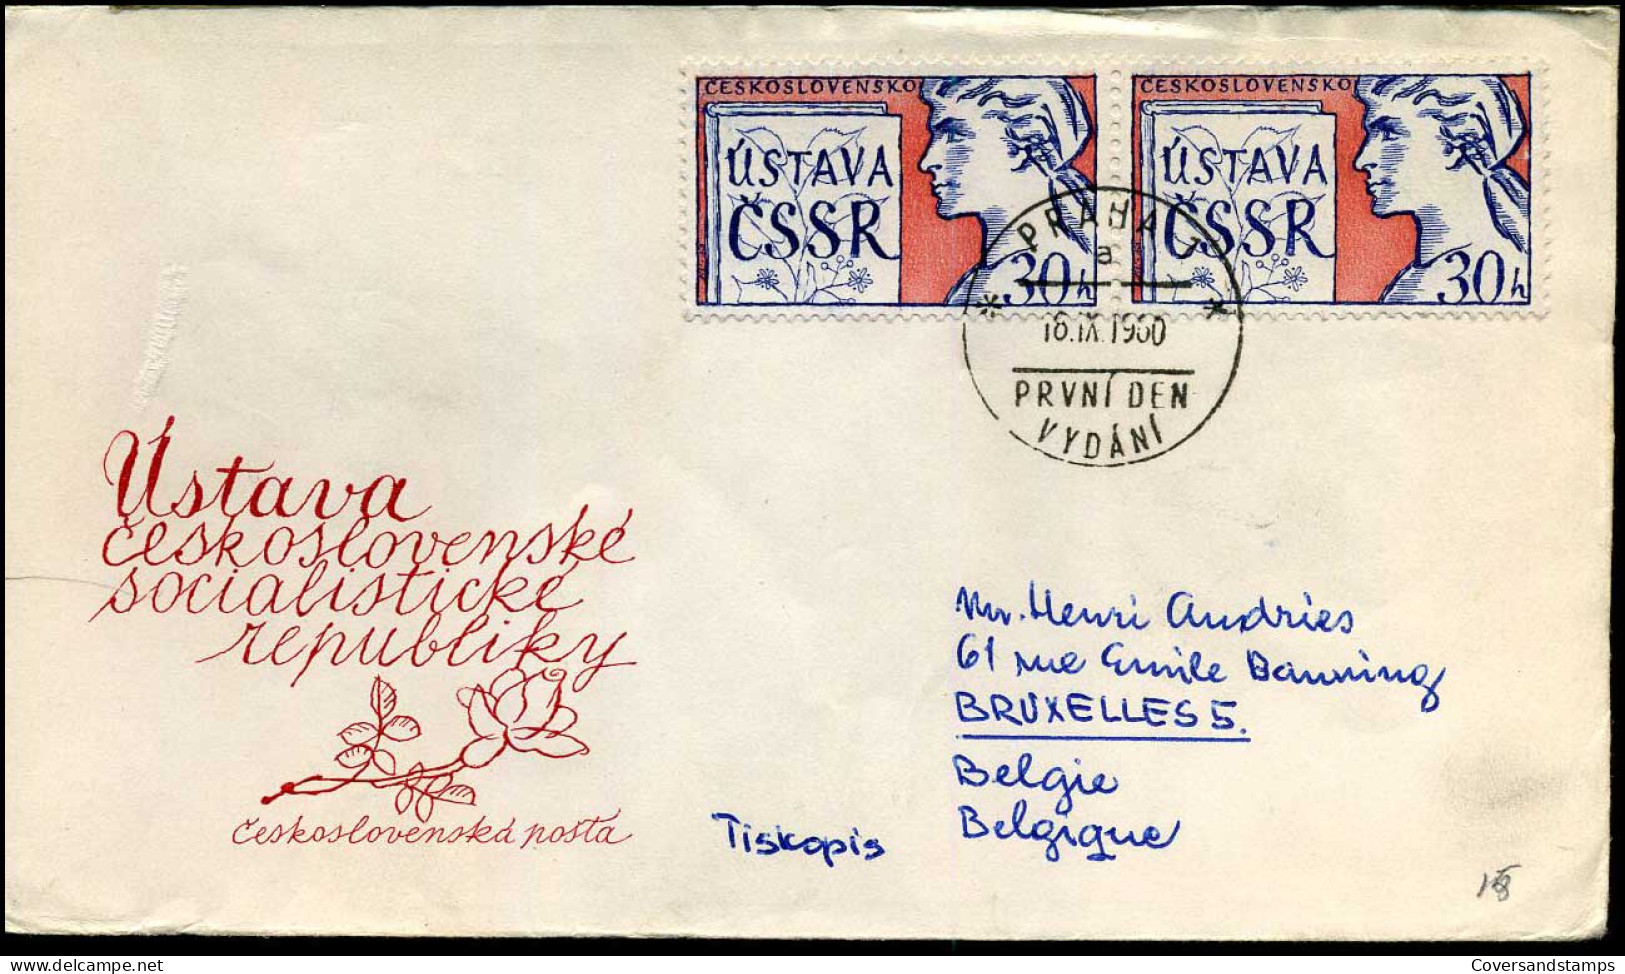 ČESKOSLOVENSKO
ÚSTAVA
ČSSR
30h
ČESKOSLOVENSKO
ÚSTAVA
ČSSR
30h
PRAHA 1
a
18.IX.1960
PRVNÍ DEN
VYDÁNÍ
Ústava
československé
socialistické
republiky
československá pošta
Mr. Henri Andries
61 rue Emile Banning
BRUXELLES 5.
Belgie
Belgique
Tiskopis
Coversandstamps